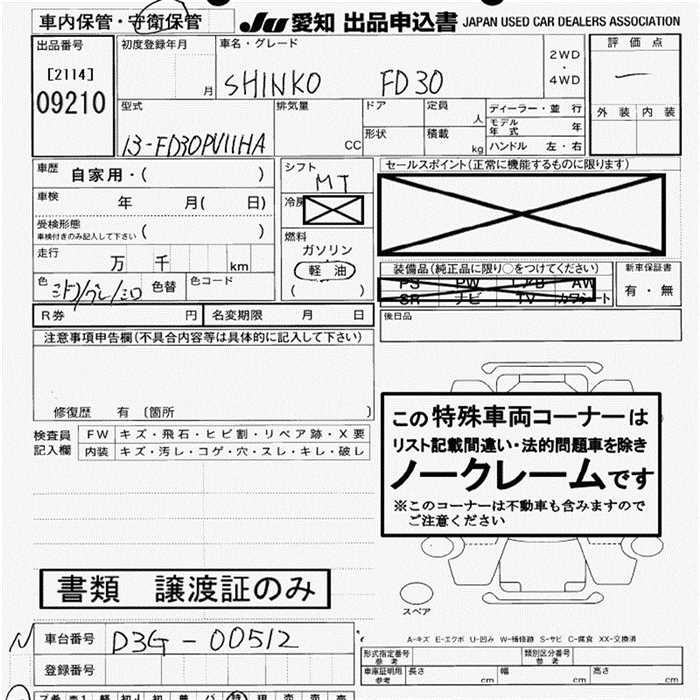 車内保管・守衛保管 JU 愛知 出品申込書 JAPAN USED CAR DEALERS ASSOCIATION
出品番号
[2114]
09210
初度登録年月
月
車名・グレード
SHINKO FD30
2WD
・
4WD
評価点
外装 内装
型式
13-FD30PV11HA
排気量
CC
ドア
形状
定員
人
積載
kg
ディーラー・並行
モデル年式 年
ハンドル 左・右
車歴
自家用・( )
車検
年 月( 日)
受検形態
車検付きのみ記入して下さい ( )
走行
万 千 km
色
色替 色コード
シフト
MT
冷房
燃料
ガソリン
軽油
( )
セールスポイント(正常に機能するものに限ります)
装備品(純品に限り○をつけてください)
PS PW エアB AW
SR ナビ TV カワシート
新車保証書
有・無
後日品
R券 円 名変期限 月 日
注意事項申告欄(不具合内容等は具体的に記入して下さい)
修復歴 有 〔箇所 〕
検査員
記入欄
FW キズ・飛石・ヒビ割・リペア跡・X要
内装 キズ・汚レ・コゲ・穴・スレ・キレ・破レ
この特殊車両コーナーは
リスト記載間違い・法的問題車を除き
ノークレームです
※このコーナーは不動車も含みますので
ご注意ください
書類 譲渡証のみ
スペア
N 車台番号 D3G-00512
登録番号
A-キズ E-エクボ U-凹み W-補修跡 S-サビ C-腐食 XX-交換済
形式指定番号
参考
類別区分番号
参考
車庫証明用
参考
長さ cm 幅 cm 高さ cm